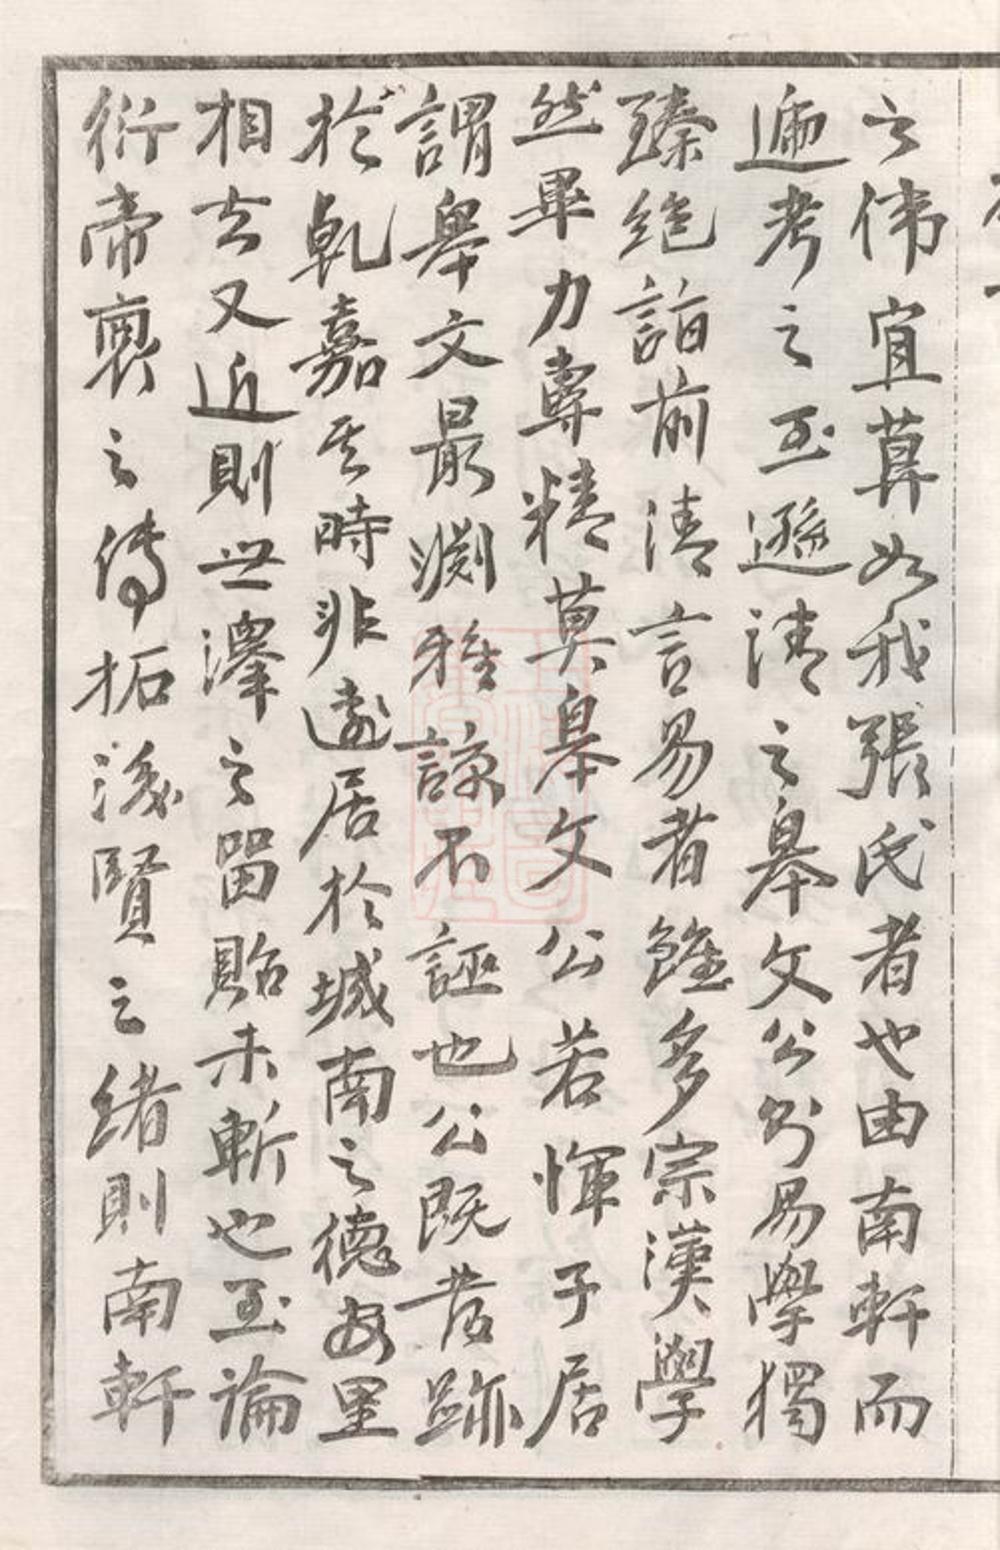 之偉宜莫如我張氏者也由南軒而
遞考之至遜清之皋文公則易學獨
臻絕詣前清言易者雖多宗漢學
然畢力專精莫皋文公若惲子居
謂皋文最淵雅諒不誣也公既發跡
於乾嘉其時非遠居於城南之德安里
相去又近則世澤之留貽未斬也至論
衍帝裔之傳拓後賢之緒則南軒